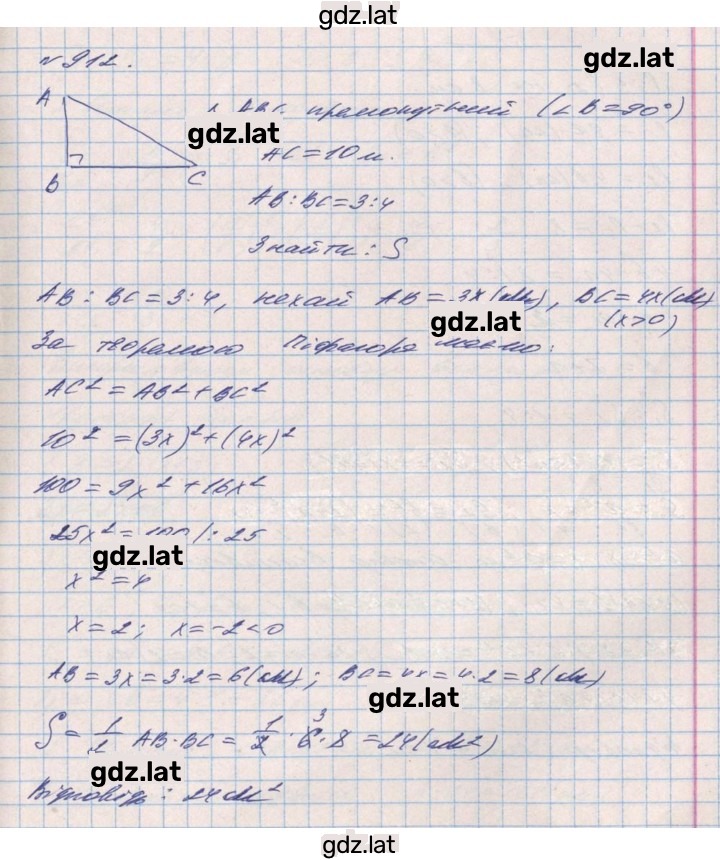 gdz.lat
№912.
gdz.lat
A
ABC прямокутний (∠B=90°)
gdz.lat
AC=10
B
C
AB:BC=3:4
Знайти: S
AB:BC=3:4, нехай AB=3x(см), BC=4x(см)
gdz.lat
(x>0)
За теоремою Піфагора маємо:
AC²=AB²+BC²
10²=(3x)²+(4x)²
100=9x²+16x²
25x²=100/:25
gdz.lat
x²=4
x=2; x=-2<0
AB=3x=3·2=6(см); BC=4x=4·2=8(см)
gdz.lat
S=1/2 AB·BC=1/2·6·8=24(см²)
3
gdz.lat
Відповідь: 24см²
gdz.lat